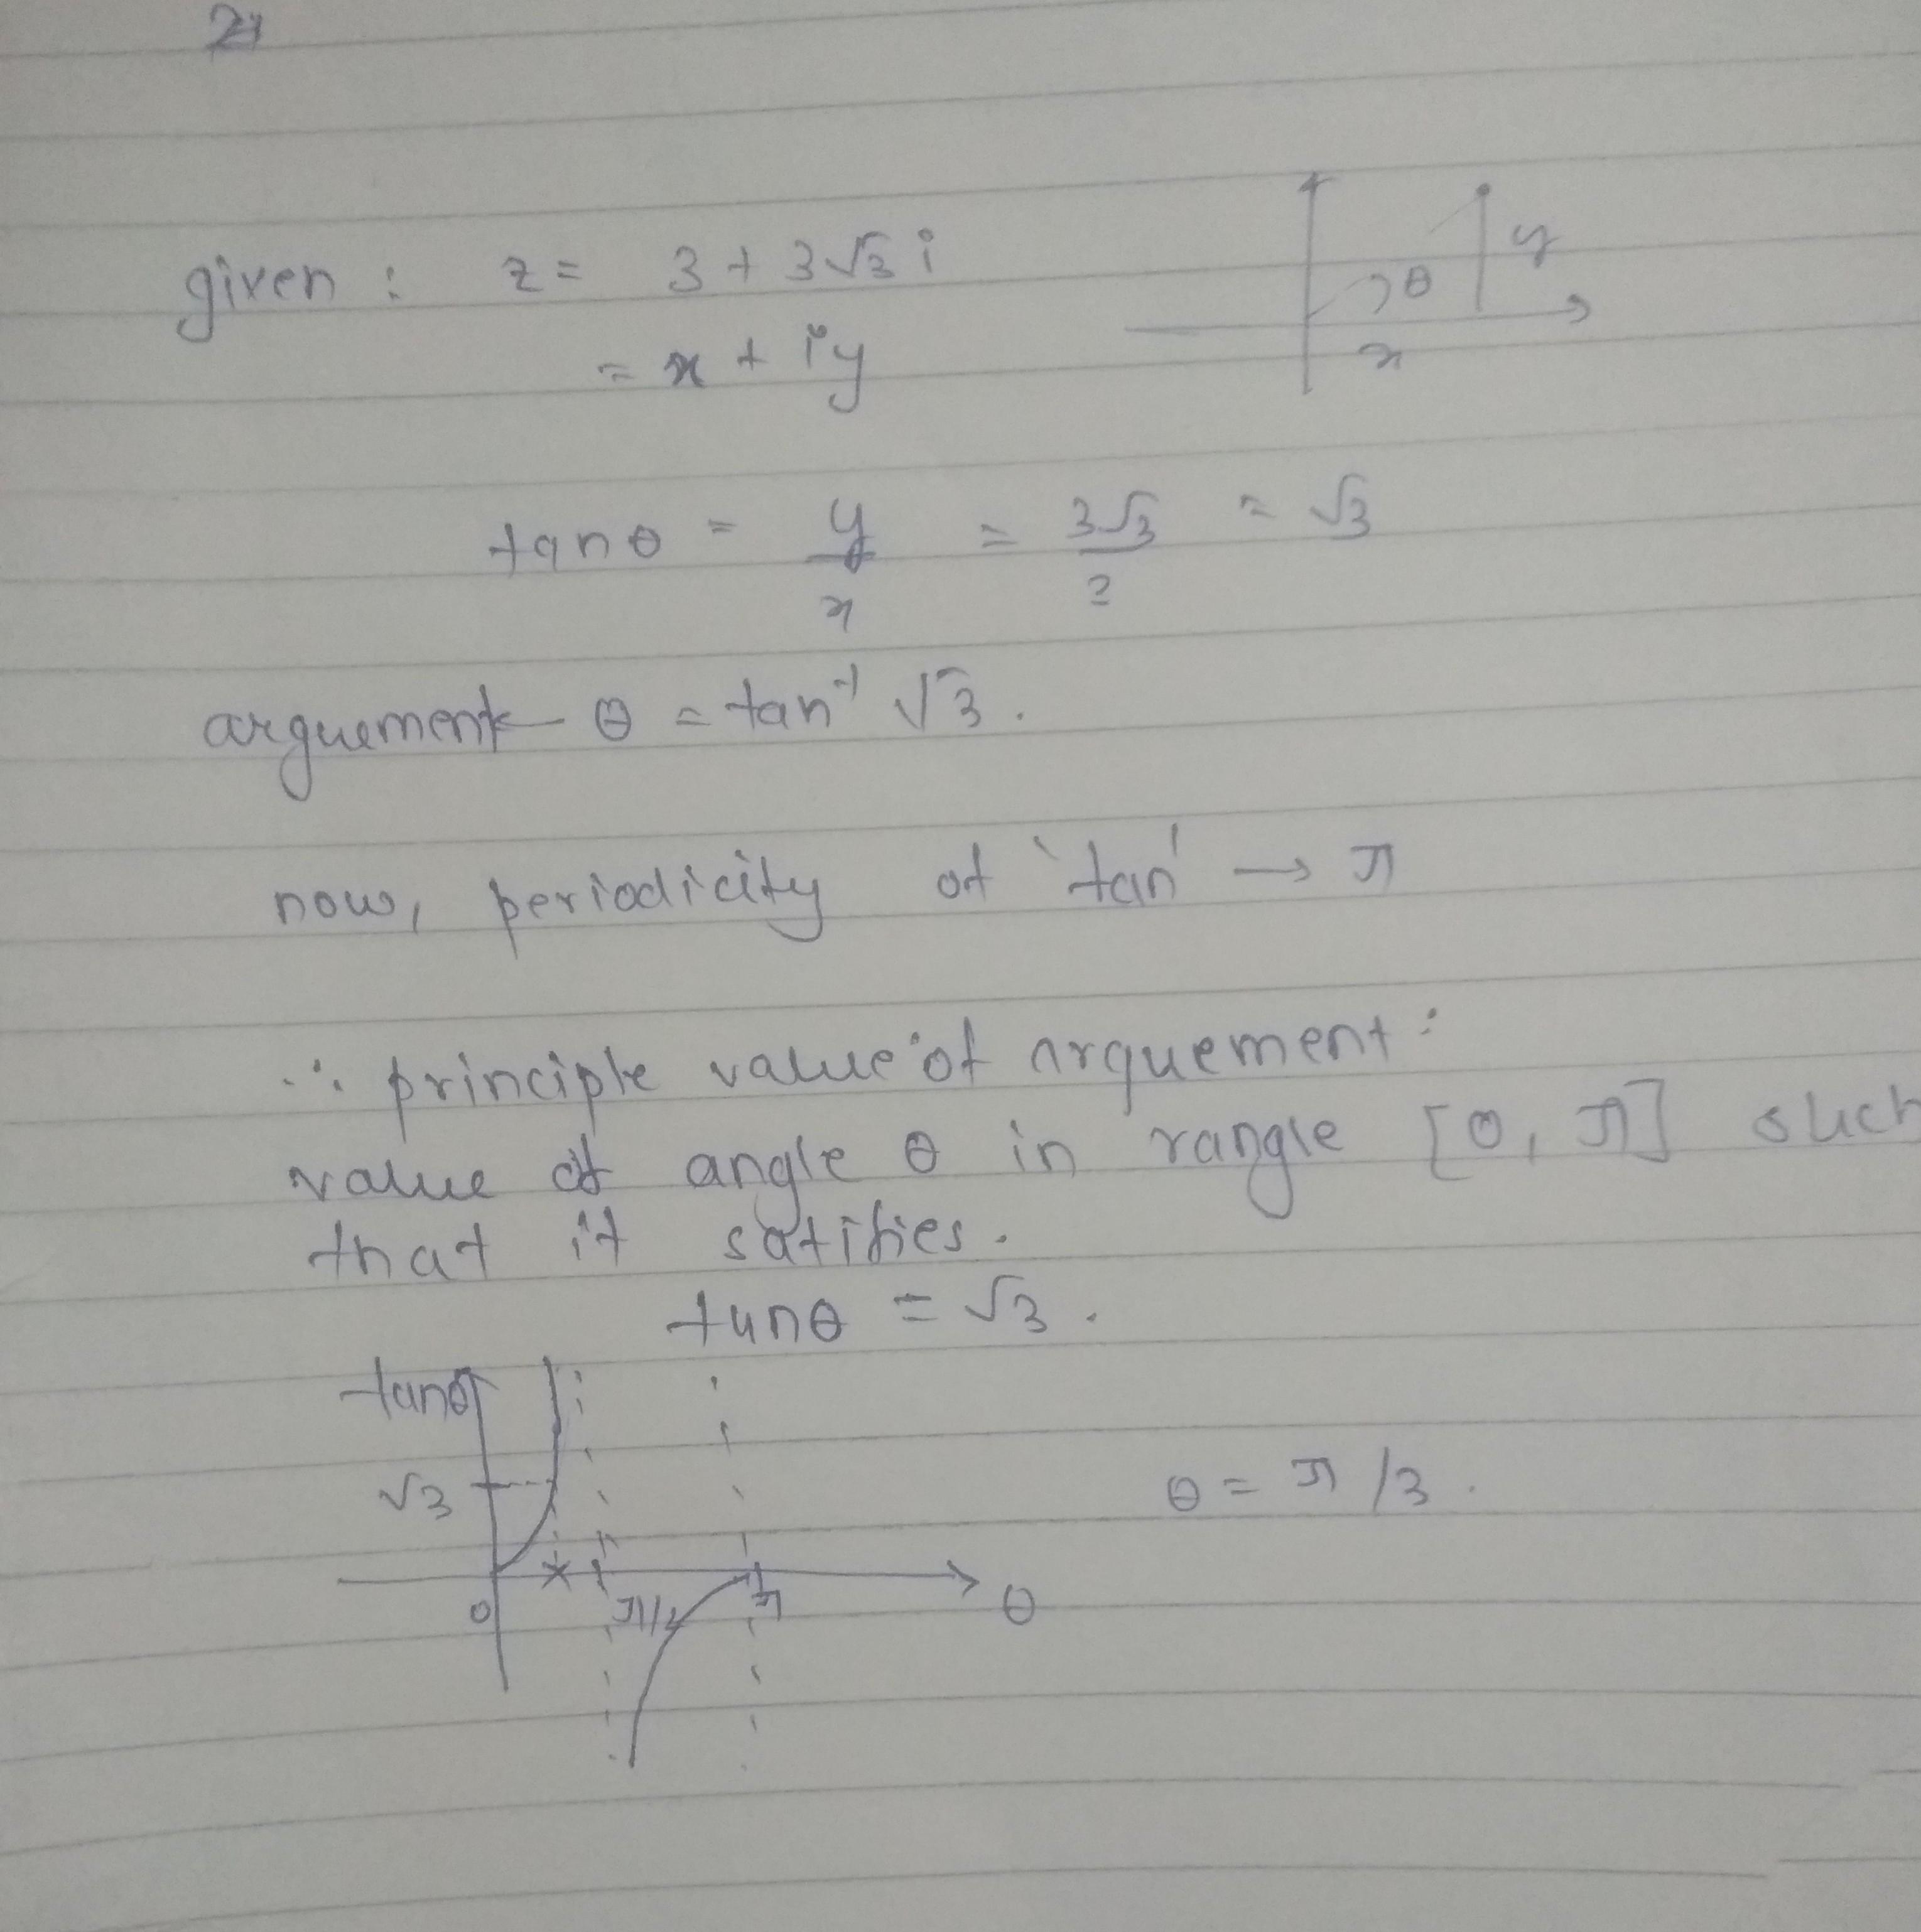 given : z = 3 + 3√3 i
= x + iy
y
θ
x
tanθ = y/x = 3√3/3 = √3
arguement θ = tan⁻¹ √3.
now, periodicity of 'tan' → π
∴ principle value of arguement :
value of angle θ in rangle [0, π] such
that it satifies.
tanθ = √3.
tanθ
√3
θ = π/3.
0 π/2 π θ